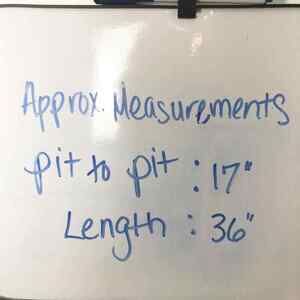 Approx. Measurements
pit to pit : 17"
Length : 36"